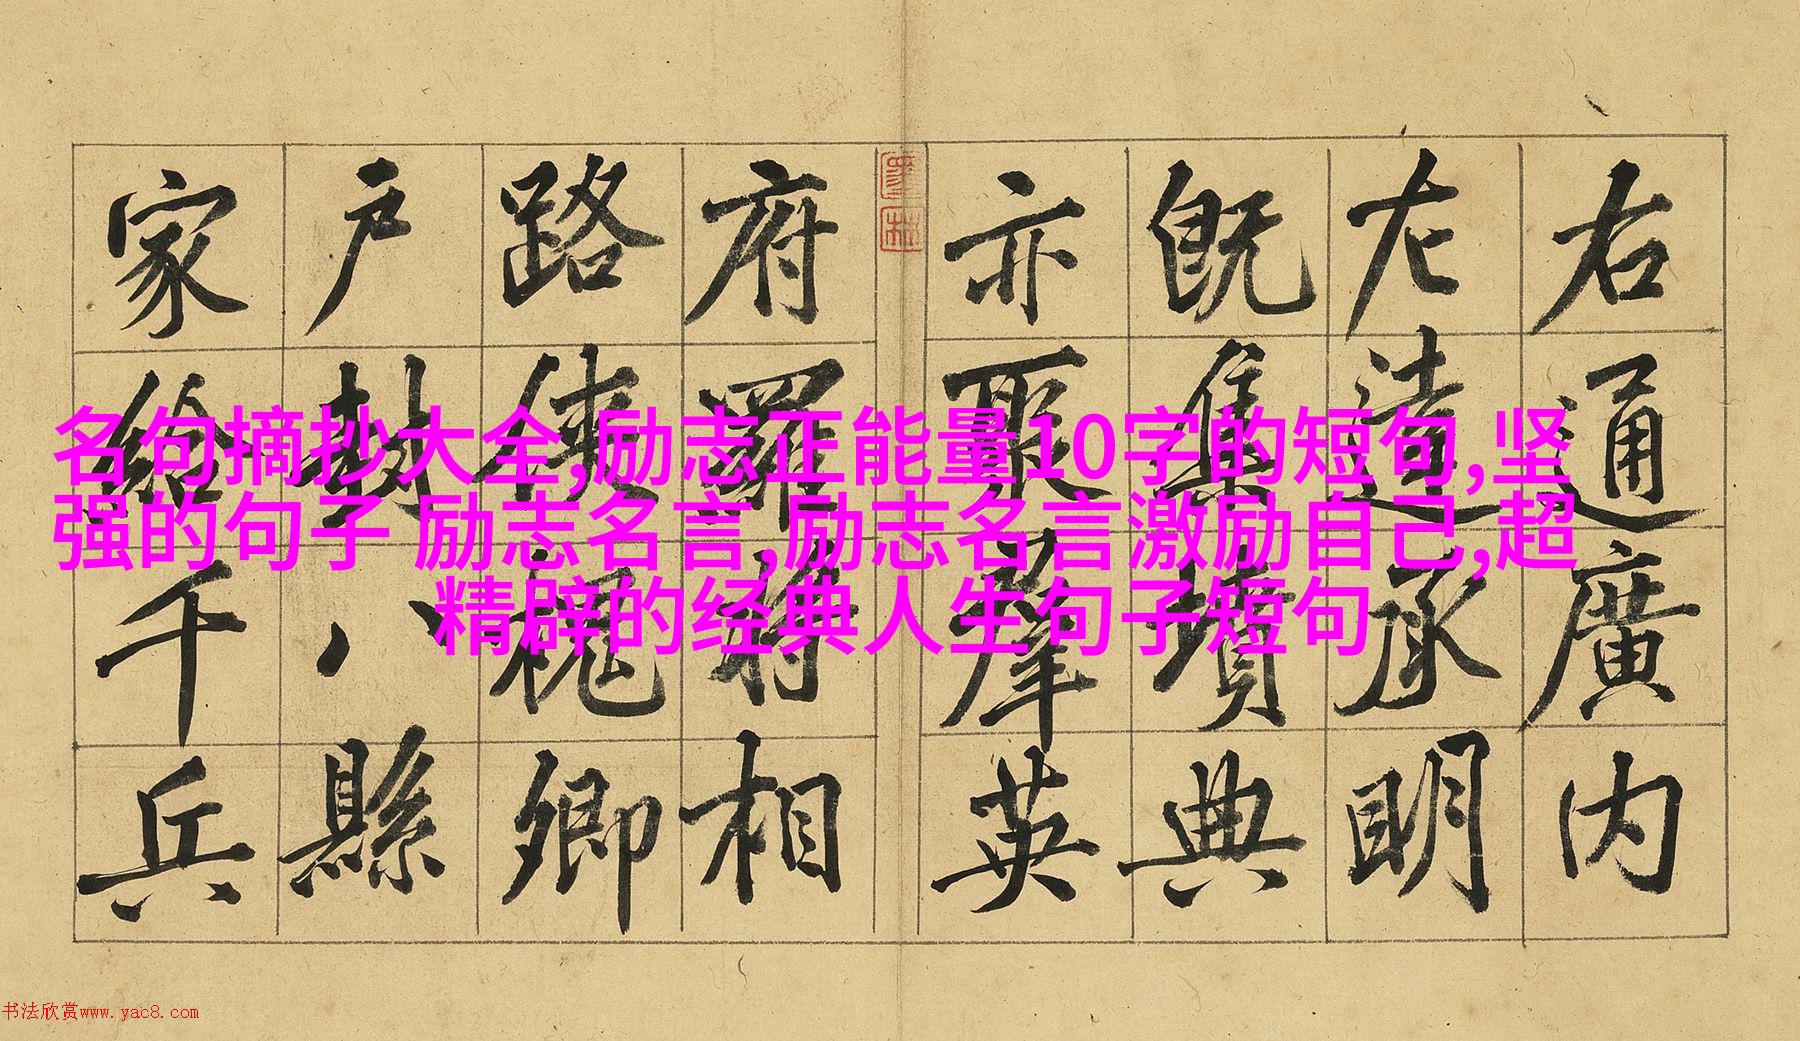 右通廣内
左達承明
既集墳典
亦聚羣英
府羅将相
路俠槐卿
戶封八縣
家給千兵
名句摘抄大全,励志正能量10字的短句,坚
强的句子 励志名言,励志名言激励自己,超
精辟的经典人生句子短句
书法欣赏www.yac8.com